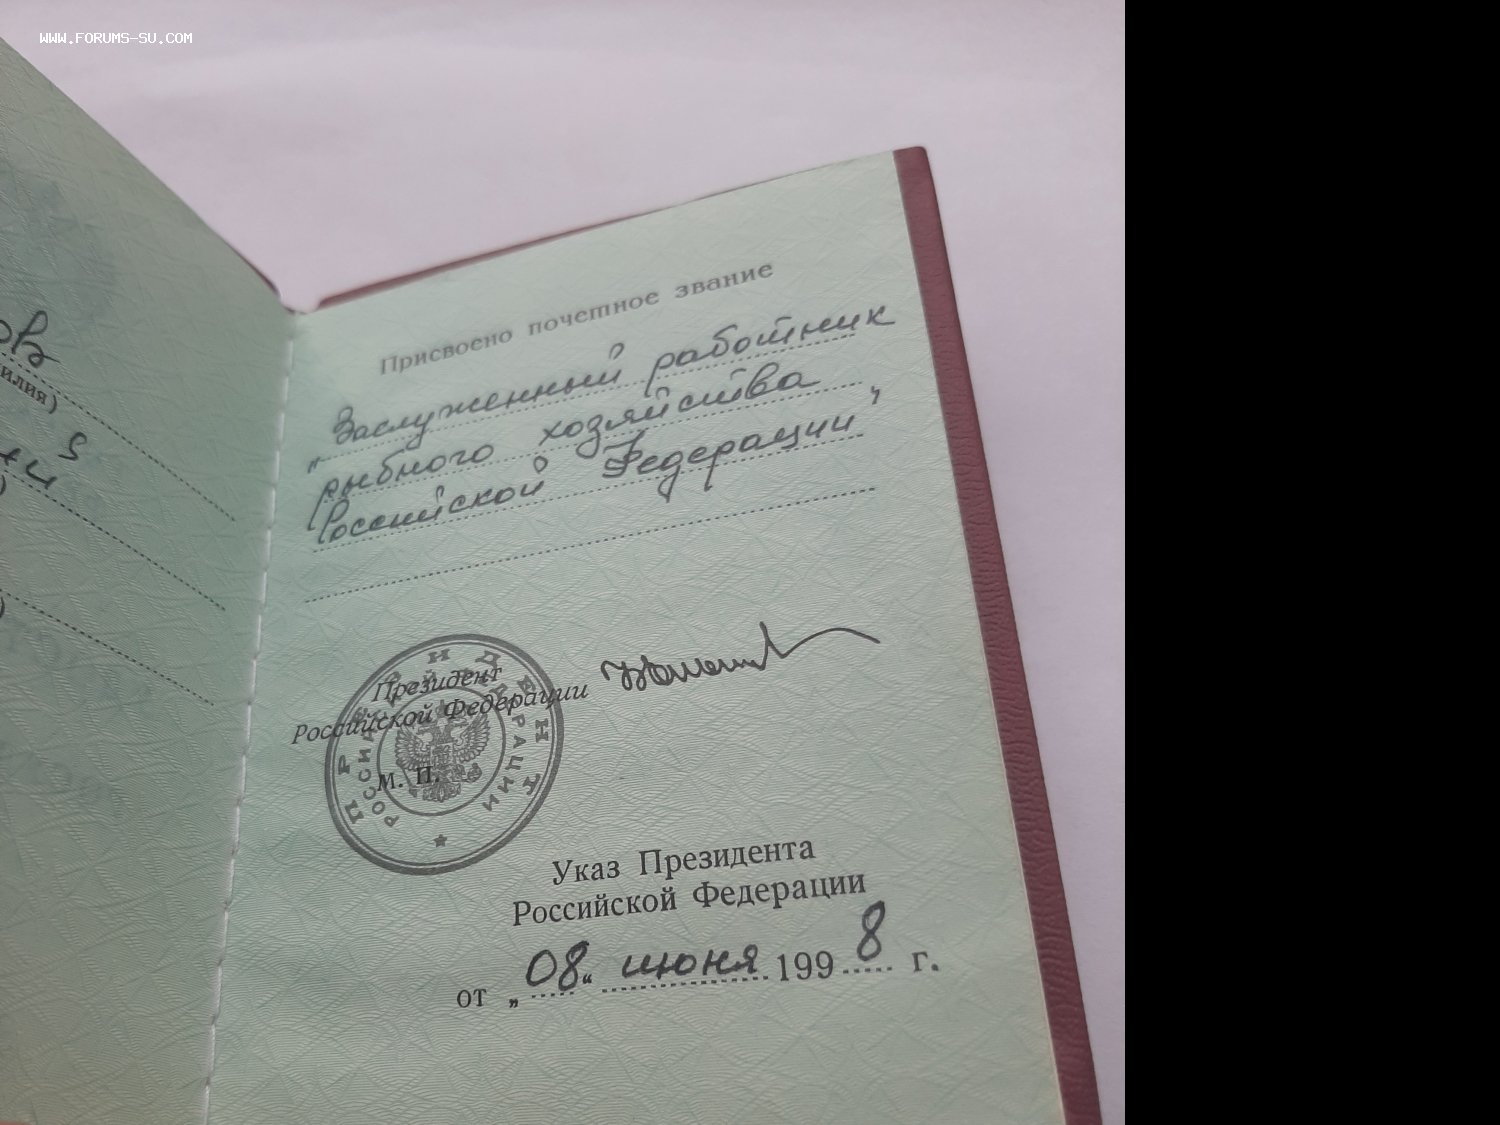 WWW.FORUMS-SU.COM
ов
илия)
Присвоено почетное звание
„Заслуженный работник
рыбного хозяйства
Российской Федерации"
Президент
Российской Федерации
м. п.
ПРЕЗИДЕНТ
РОССИЙСКОЙ ФЕДЕРАЦИИ
Указ Президента
Российской Федерации
от „08“ июня 1998 г.